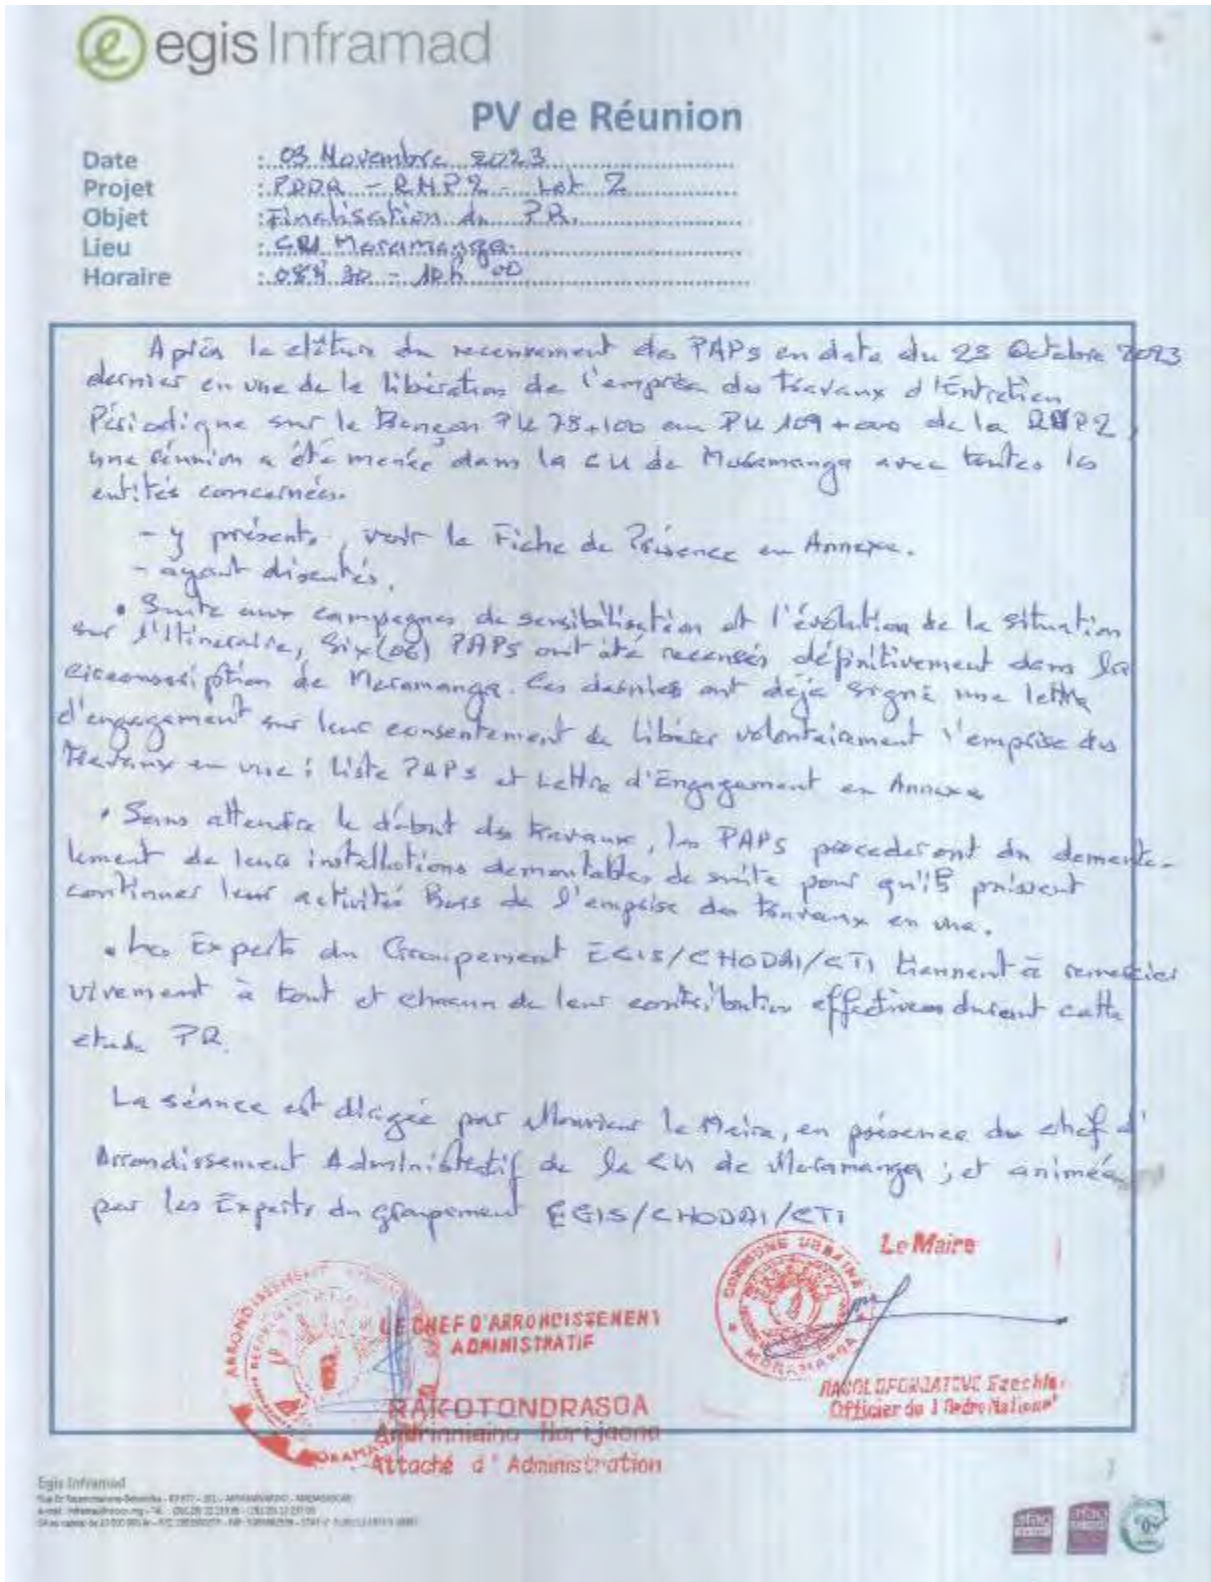 egis Inframad
PV de Réunion
Date : 03 Novembre 2023
Projet : PDDR - RNP2 - Lot 2
Objet : Finalisation du PR.
Lieu : CU Moramanga
Horaire : 08h 30 - 10h 00
Après la clôture du recensement des PAPs en date du 23 Octobre 2023
dernier en vue de la libération de l'emprise des travaux d'Entretien
Périodique sur le Tronçon PK 78+100 au PK 109+000 de la RNP2,
une réunion a été menée dans la CU de Moramanga avec toutes les
entités concernées.
- y présents, voir la Fiche de Présence en Annexe.
- ayant discutés,
• Suite aux campagnes de sensibilisation et l'évolution de la situation
sur l'Itineraire, Six (06) PAPs ont été recensés définitivement dans la
circonscription de Moramanga. Ces derniers ont déjà signé une lettre
d'engagement sur leur consentement de libérer volontairement l'emprise des
travaux en vue : liste PAPs et Lettre d'Engagement en Annexe
• Sans attendre le début des travaux, les PAPs procederont du demante-
lement de leurs installations demontables de suite pour qu'ils puissent
continuer leur activités hors de l'emprise des travaux en vue.
• Les Experts du Groupement EGIS/CHODAI/CTI tiennent à remercier
vivement à tout et chacun de leur contribution effectives durant cette
etude PR.
La séance est dirigée par Monsieur le Maire, en présence du chef d'
Arrondissement Administratif de la CU de Moramanga ; et animée
par les Experts du groupement EGIS/CHODAI/CTI
Le Maire
COMMUNE URBAINE
MORAMANGA
LE CHEF D'ARRONDISSEMENT
ADMINISTRATIF
Ezechiel
Officier de l'Ordre National
RAKOTONDRASOA
Andrinmaina Harijaona
Attaché d'Administration
Egis Inframad